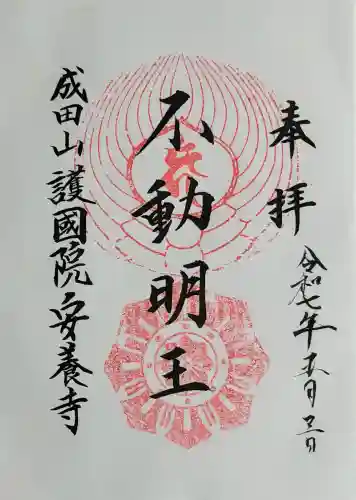 奉拝
令和七年五月三日
不動明王
成田山 護國院 安養寺